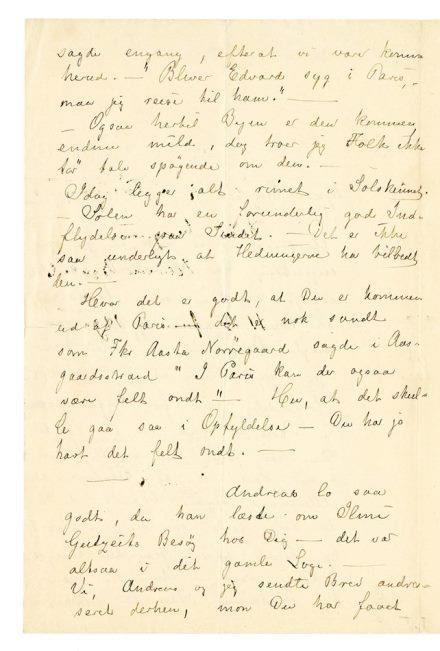 sagde engang, efterat vi vare komne
herud. — "Bliver Edvard syg i Paris, —
maa jeg reise til ham." —
— Ogsaa hertil Byen er den kommen
endnu mild, dog troer jeg Folk ikke
tør tale spøgende om den. —
Idag ligger alt rimet i Solskinnet.
— Solen har en forunderlig god Ind-
flydelse paa Sindet. — Det er ikke
saa underligt at Hedningerne har tilbedt
den. —
Hvor det er godt, at Du er kommen
ud af Paris — det er nok sandt
som Frk Aasta Nørregaard sagde i Aas-
gaardsstrand "I Paris kan der ogsaa
være felt ondt" — Hu, at det skul-
le gaa saa i Opfyldelse — Du har jo
havt det felt ondt. —
Andreas lo saa
godt, da han læste om Ilmi
Gutzeits Besøg hos Dig — det var
altsaa i dit gamle Logi. —
Vi, Andreas og jeg sendte Brev andres-
seret derhen, mon Du har faaet